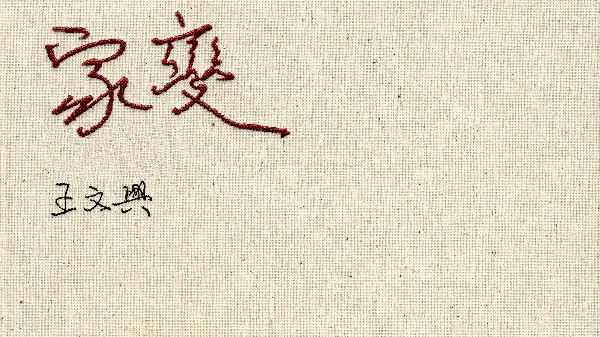 家變
王文興